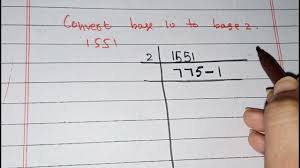 Convert base 10 to base 2.
1551
2 1551
775-1